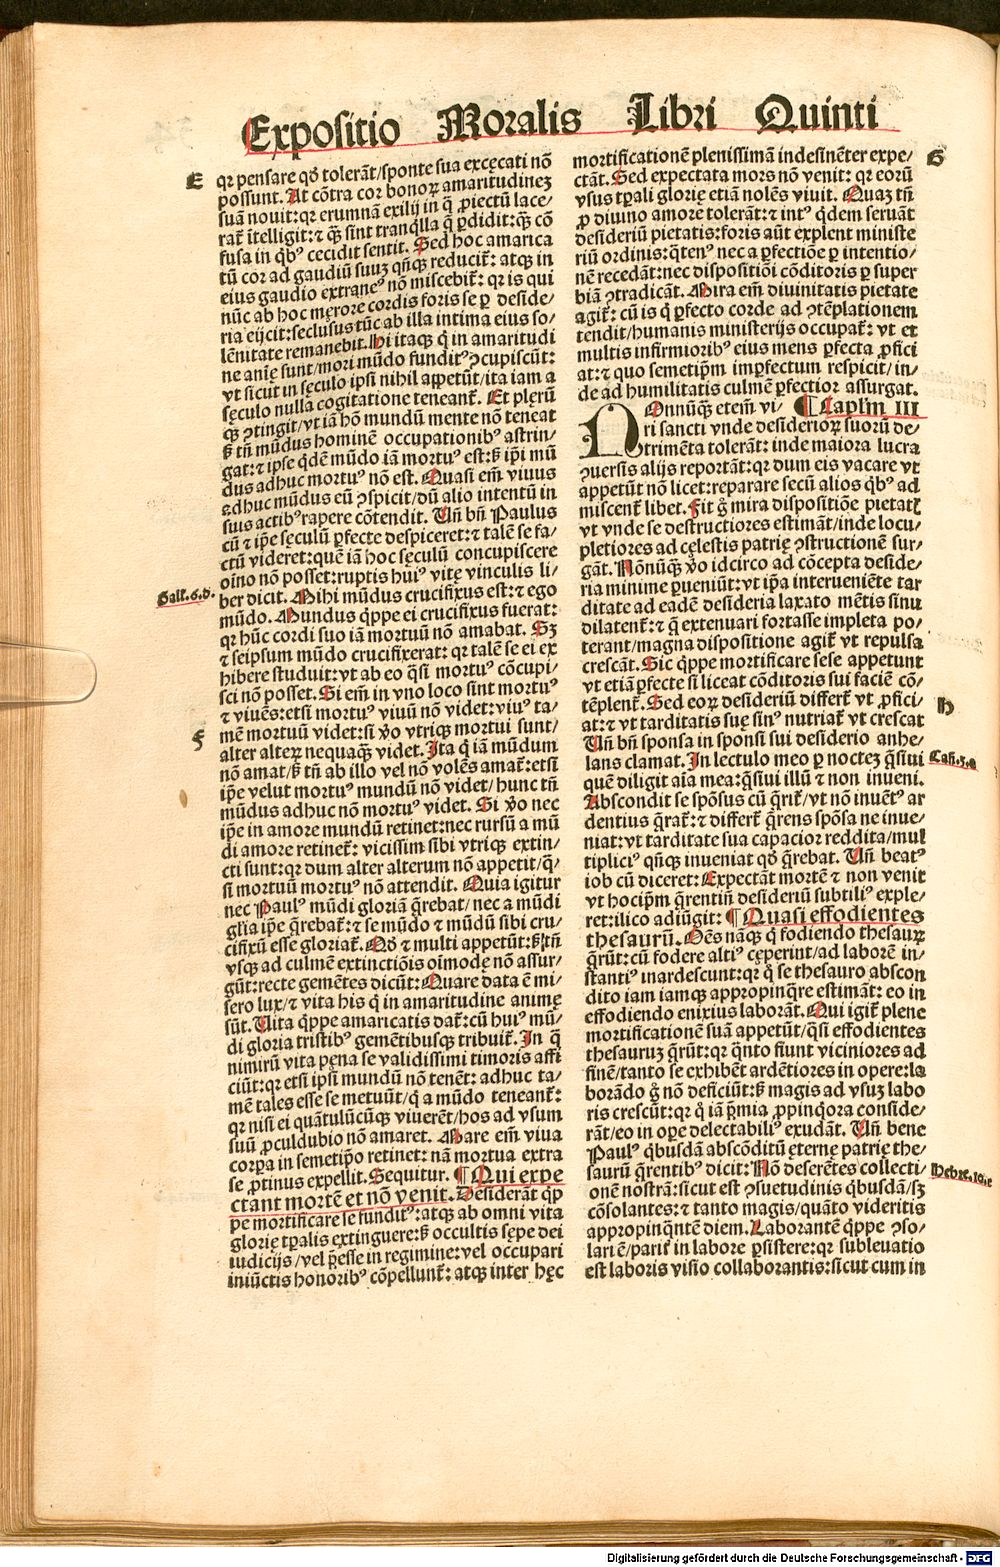 Expositio Moralis Libri Quinti
E
qꝛ pensare qđ tolerãt/sponte sua excęcati nõ
possunt. At cõtra cor bonoꝝ amaritudineꝫ
suã nouit: qꝛ erumnã exilij in q̃ ꝓiectũ lace/
rat᷑ ĩtelligit: ⁊ q̃ꝫ sint tranq̇lla q̃ ꝑdidit: q̃ꝫ cõ
fusa in qḃꝰ cecidit sentit. Sed hoc amarica
tũ cor ad gaudiũ suuꝫ qñqꝫ reducit᷑: atqꝫ in
eius gaudio extraneꝰ nõ miscebit᷑: qꝛ is qui
nũc ab hoc męrore cordis foris se ꝑ deside/
ria eijcit: seclusus tũc ab illa intima eius so/
lẽnitate remanebit. Hi itaqꝫ q̇ in amaritudi
ne anię sunt/mori mũdo funditꝰ ꝯcupiscũt:
vt sicut in sęculo ipsi nihil appetũt/ita iam a
sęculo nulla cogitatione teneant᷑. Et plerũ
qꝫ ꝯtingit/vt iã hõ mundũ mente nõ teneat
ꝫ tñ mũdus hominẽ occupationibꝰ astrin/
gat: ⁊ ipse qdẽ mũdo iã mortuꝰ est: ꝫ ip̃i mũ
dus adhuc mortuꝰ nõ est. Quasi em̃ viuus
adhuc mũdus eũ ꝯspicit/dũ alio intentũ in
suis actibꝰ rapere cõtendit. Uñ bñ Paulus
cũ ⁊ ip̃e sęculũ ꝑfecte despiceret: ⁊ talẽ se fa/
ctũ videret: quẽ iã hoc sęculũ concupiscere
oĩno nõ posset: ruptis huiꝰ vitę vinculis li/
Gala. 6. d.
ber dicit. Mihi mũdus crucifixus est: ⁊ ego
mũdo. Mundus q̇ppe ei crucifixus fuerat:
qꝛ hũc cordi suo iã mortuũ nõ amabat. Sꝫ
⁊ seipsum mũdo crucifixerat: qꝛ talẽ se ei ex
hibere studuit: vt ab eo q̃si mortuꝰ cõcupi/
sci nõ posset. Si em̃ in vno loco sint mortuꝰ
⁊ viuẽs: etsi mortuꝰ viuũ nõ videt: viuꝰ ta/
F
mẽ mortuũ videt: si ꝟo vtriqꝫ mortui sunt/
alter alteꝝ nequaqꝫ videt. Ita q̇ iã mũdum
nõ amat/ꝫ tñ ab illo vel nõ volẽs amat᷑: etsi
ip̃e velut mortuꝰ mundũ nõ videt/hunc tñ
mũdus adhuc nõ mortuꝰ videt. Si ꝟo nec
ip̃e in amore mundũ retinet: nec rursũ a mũ
di amore retinet᷑: vicissim sibi vtriqꝫ extin/
cti sunt: qꝛ dum alter alterum nõ appetit/q̃/
si mortuũ mortuꝰ nõ attendit. Quia igitur
nec Paulꝰ mũdi gloriã q̃rebat/nec a mũdi
gl̃ia ip̃e q̃rebat᷑: ⁊ se mũdo ⁊ mũdũ sibi cru/
cifixũ esse gloriat᷑. Qđ ⁊ multi appetũt: ꝫ tñ
vsqꝫ ad culmẽ extinctiõis oĩmode nõ assur/
gũt: recte gemẽtes dicũt: Quare data ẽ mi/
sero lux/⁊ vita his q̇ in amaritudine animę
sũt. Uita q̇ppe amaricatis dat᷑: cũ huiꝰ mũ/
di gloria tristibꝰ gemẽtibusqꝫ tribuit᷑. In q̃
nimirũ vita pęna se validissimi timoris affi
ciũt: qꝛ etsi ipsi mundũ nõ tenẽt: adhuc ta/
mẽ tales esse se metuũt/q̇ a mũdo teneant᷑:
qꝛ nisi ei quãtulũcũqꝫ viuerẽt/hos ad vsum
suũ ꝓculdubio nõ amaret. Mare em̃ viua
corꝑa in semetip̃o retinet: nã mortua extra
se ꝓtinus expellit. Sequitur. ¶Qui expe
ctant mortẽ et nõ venit. Desiderãt q̇p
pe mortificare se funditꝰ: atqꝫ ab omni vita
glorię tꝑalis extinguere: ꝫ occultis sępe dei
iudicijs/vel p̃esse in regimine: vel occupari
iniũctis honoribꝰ cõpellunt᷑: atqꝫ inter hęc
mortificationẽ plenissimã indesinẽter expe/
G
ctãt. Sed expectata mors nõ venit: qꝛ eorũ
vsus tꝑali glorię etiã nolẽs viuit. Quaꝫ tñ
ꝓ diuino amore tolerãt: ⁊ intꝰ q̇dem seruãt
desideriũ pietatis: foris aũt explent ministe
riũ ordinis: q̃tenꝰ nec a ꝑfectiõe ꝑ intentio/
nẽ recedãt: nec dispositiõi cõditoris ꝑ super
biã ꝯtradicãt. Mira em̃ diuinitatis pietate
agit᷑: cũ is q̇ ꝑfecto corde ad ꝯtẽplationem
tendit/humanis ministerijs occupat᷑: vt et
multis infirmioribꝰ eius mens ꝑfecta ꝓfici
at: ⁊ quo semetip̃m imꝑfectum respicit/in/
de ad humilitatis culmẽ ꝑfectior assurgat.
NOnnũqꝫ etem̃ vi/ ¶Capl̃m III
ri sancti vnde desiderioꝝ suorũ de/
trimẽta tolerãt: inde maiora lucra
ꝯuersis alijs reportãt: qꝛ dum eis vacare vt
appetũt nõ licet: reparare secũ alios qḃꝰ ad
miscent᷑ libet. Fit g̊ mira dispositiõe pietat᷑
vt vnde se destructiores estimãt/inde locu/
pletiores ad cęlestis patrię ꝯstructionẽ sur/
gãt. Nõnũqꝫ ꝟo idcirco ad cõcepta deside/
ria minime ꝑueniũt: vt ip̃a interueniẽte tar
ditate ad eadẽ desideria laxato mẽtis sinu
dilatent᷑: ⁊ q̃ extenuari fortasse impleta po/
terant/magna dispositione agit᷑ vt repulsa
crescãt. Sic q̇ppe mortificare sese appetunt
vt etiã ꝑfecte si liceat cõditoris sui faciẽ cõ/
tẽplent᷑. Sed eoꝝ desideriũ differt᷑ vt ꝓfici/
H
at: ⁊ vt tarditatis suę sinꝰ nutriat᷑ vt crescat
Uñ bñ sponsa in sponsi sui desiderio anhe/
lans clamat. In lectulo meo ꝑ nocteꝫ q̃siui
Cañ. 3. a
quẽ diligit aĩa mea: q̃siui illũ ⁊ non inueni.
Abscondit se spõsus cũ q̃rit᷑/vt nõ inuẽtꝰ ar
dentius q̃rat᷑: ⁊ differt᷑ q̃rens spõsa ne inue/
niat: vt tarditate sua capacior reddita/mul
tipliciꝰ qñqꝫ inueniat qđ q̃rebat. Uñ beatꝰ
iob cũ diceret: Expectãt mortẽ ⁊ non venit
vt hocip̃m q̃rentiũ desideriũ subtiliꝰ exple/
ret: ilico adiũgit: ¶Quasi effodientes
thesaurũ. Oẽs nãqꝫ q̇ fodiendo thesauꝝ
q̃rũt: cũ fodere altiꝰ cęperint/ad laborẽ in/
stantiꝰ inardescunt: qꝛ q̊ se thesauro abscon
dito iam iamqꝫ appropinq̃re estimãt: eo in
effodiendo enixius laborãt. Qui igit᷑ plene
mortificationẽ suã appetũt/q̃si effodientes
thesauruꝫ q̃rũt: qꝛ q̃nto fiunt viciniores ad
finẽ/tanto se exhibẽt ardẽtiores in opere: la
borãdo g̊ nõ deficiũt: ꝫ magis ad vsuꝫ labo
ris crescũt: qꝛ q̊ iã p̃mia ꝓpinq̇ora conside/
rãt/eo in oꝑe delectabiliꝰ exudãt. Uñ bene
Paulꝰ q̇busdã abscõditũ ęternę patrię the/
saurũ q̃rentibꝰ dicit: Nõ deserẽtes collecti/
Hebre. 10. e
onẽ nostrã: sicut est ꝯsuetudinis q̇busdã/sꝫ
cõsolantes: ⁊ tanto magis/quãto videritis
appropinq̃ntẽ diem. Laborantẽ q̇ppe ꝯso/
lari ẽ/parit᷑ in labore ꝑsistere: qꝛ subleuatio
est laboris visio collaborantis: sicut cum in
Digitalisierung gefördert durch die Deutsche Forschungsgemeinschaft - DFG